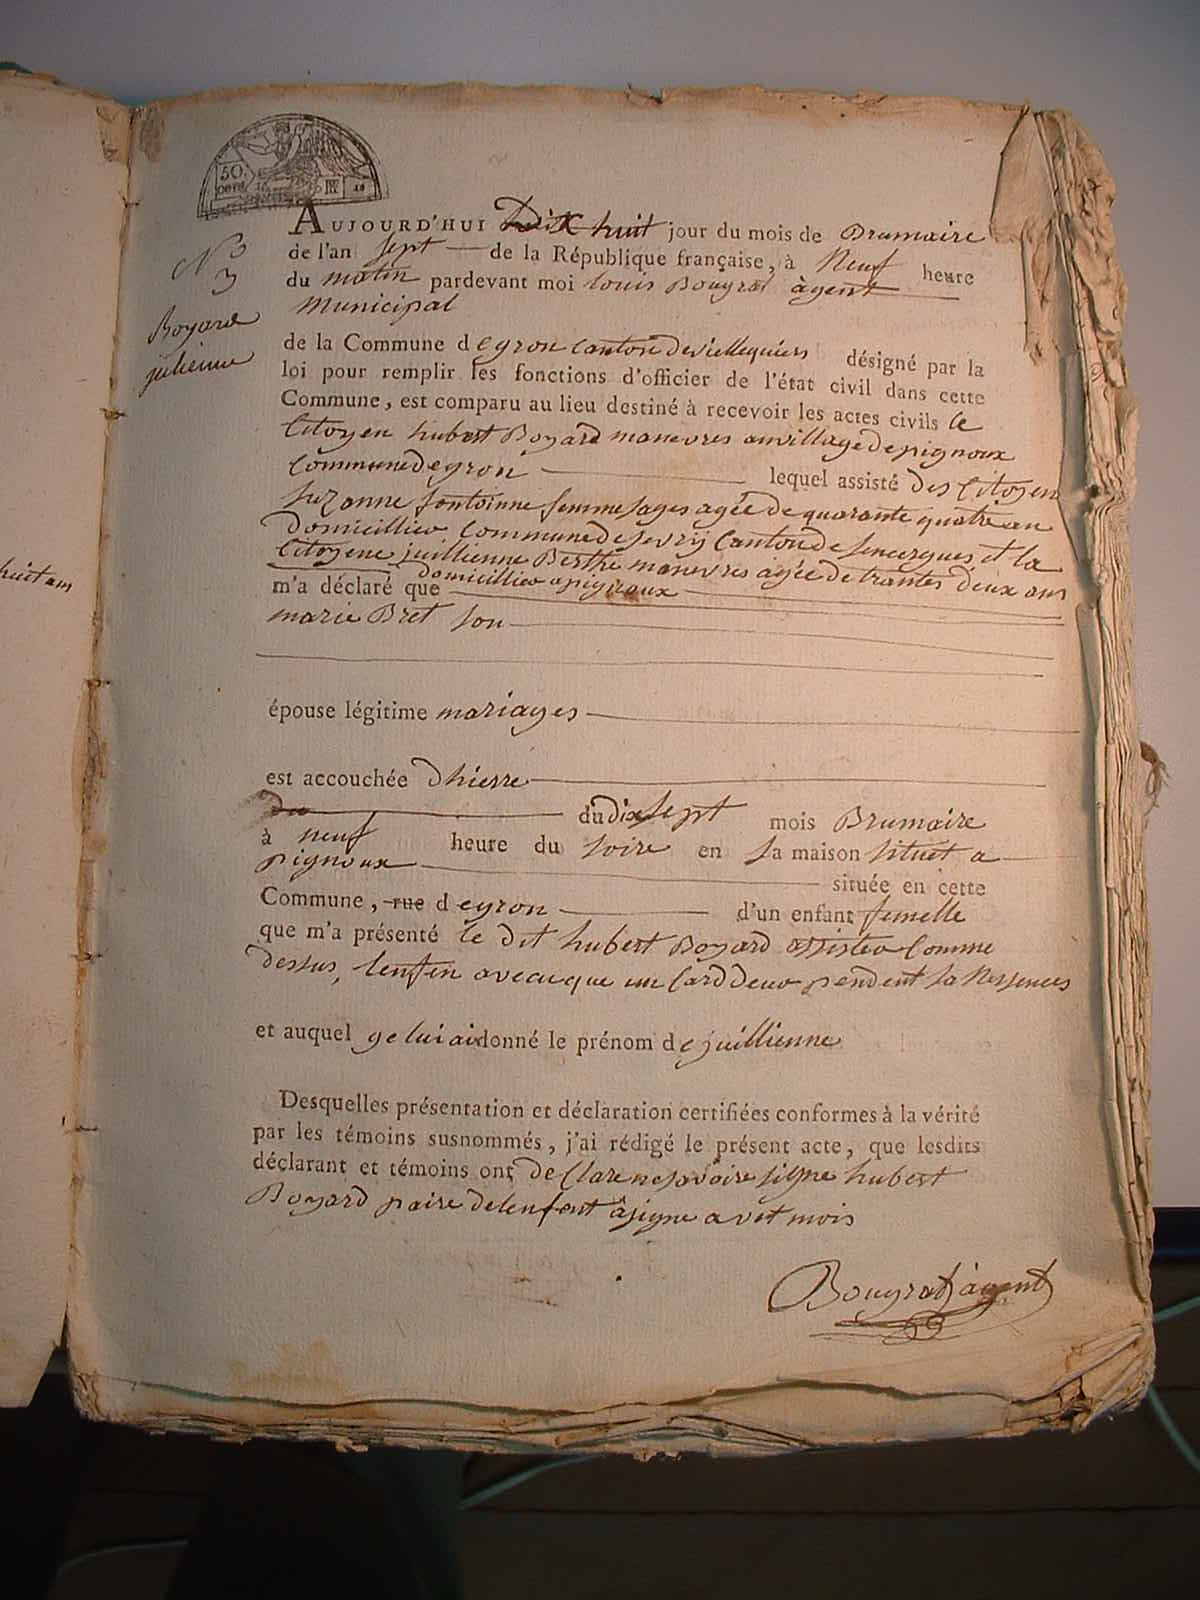 50.
CENT.
AUJOURD'HUI Dix huit jour du mois de Brumaire
de l'an sept de la République française, à Neuf heure
du matin pardevant moi louis Bouyrat àgent
Municipal
N°
3
Boyard
julienne
de la Commune d eyron Canton de villequiers désigné par la
loi pour remplir les fonctions d'officier de l'état civil dans cette
Commune, est comparu au lieu destiné à recevoir les actes civils le
Citoyen hubert Boyard manevres auvillage de pignoux
Commune deyron lequel assisté des Citoyen
Suzanne fontoinne femme sages agée de quarante quatre an
Domicilliée Commune de sevrÿ Canton de sencergues et la
Citoyene juillienne Berthe manevres agée de trantes deux ans
domicilliée a pignoux
m'a déclaré que
marie Bret son
épouse légitime mariages
est accouchée dhierre
du
du Dix sept mois Brumaire
à neuf heure du soire en sa maison situet a
pignoux située en cette
Commune, rue d eyron d'un enfant femelle
que m'a présenté le dit hubert Boyard assistée Comme
dessus, lenfen avecuque un Card deuo pendent sa Nessences
et auquel ge lui ai donné le prénom de juillienne
Desquelles présentation et déclaration certifiées conformes à la vérité
par les témoins susnommés, j'ai rédigé le présent acte, que lesdits
déclarant et témoins ont de Clare ne savoire signe hubert
Boyard paire delenfent à signe a vet mois
Bouyrat àgent
huit ans